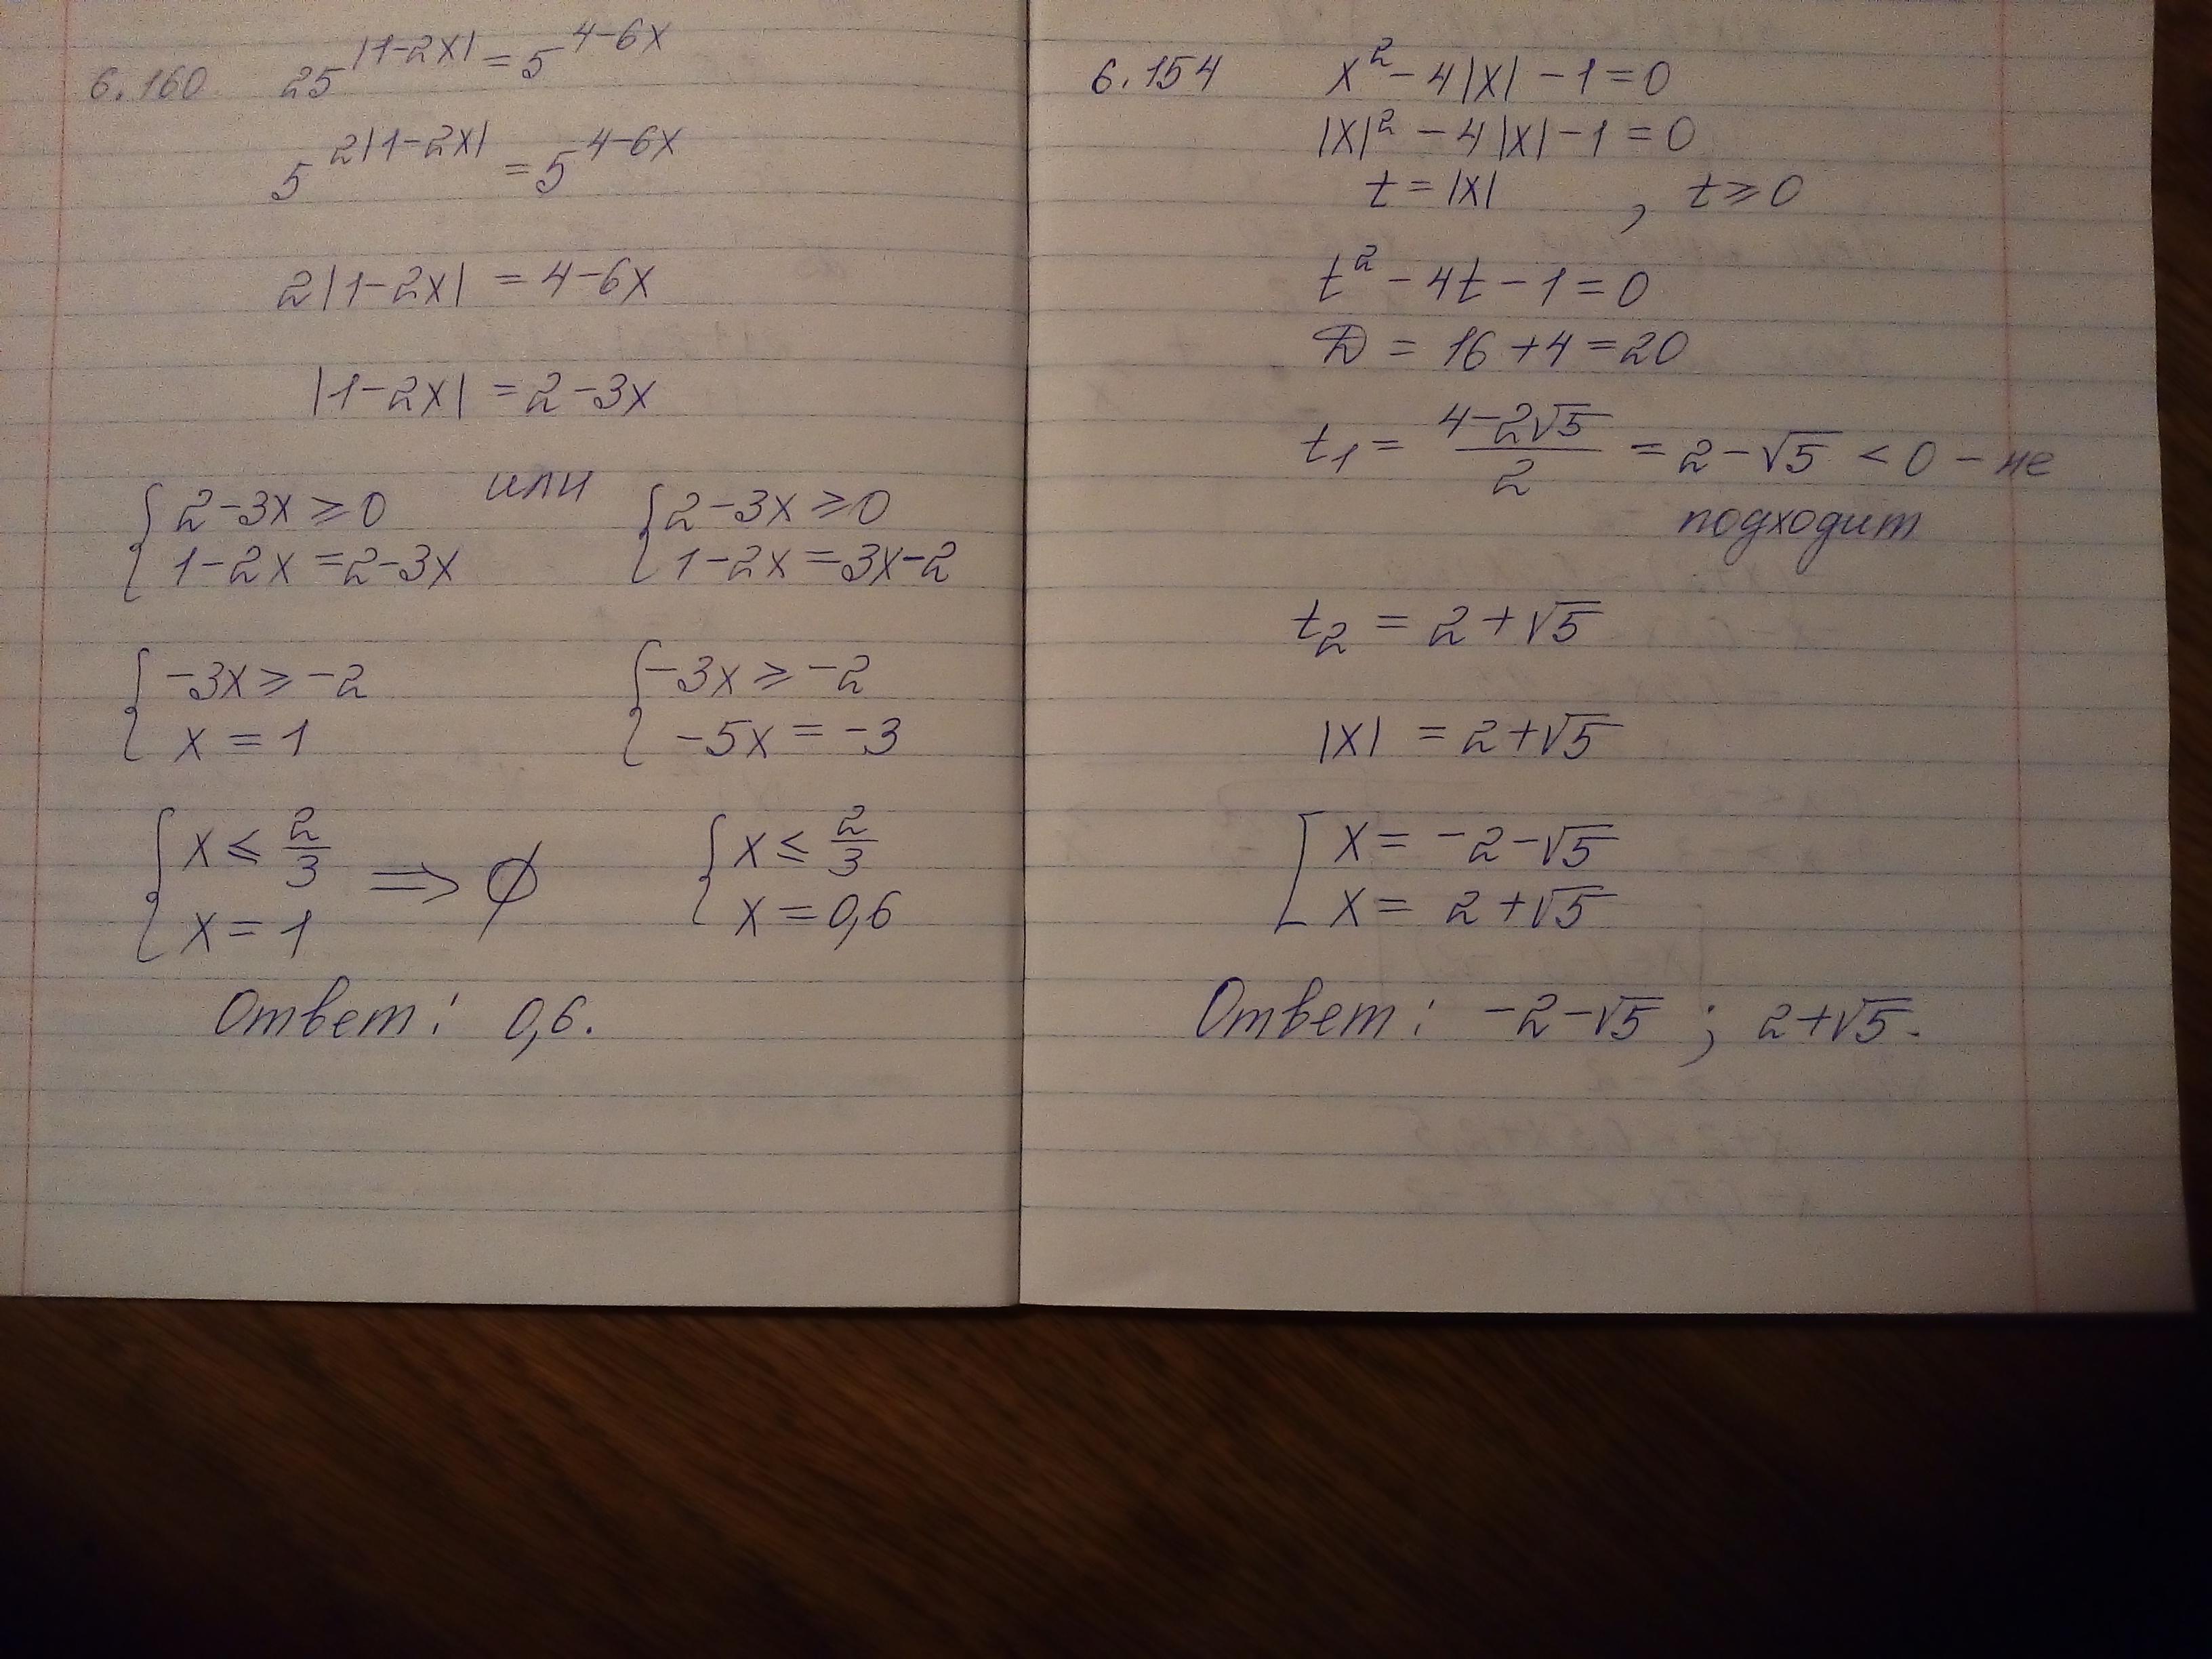 6.160 25^|1-2x| = 5^4-6x
5^2|1-2x| = 5^4-6x
2|1-2x| = 4-6x
|1-2x| = 2-3x
{ 2-3x ⩾ 0 или { 2-3x ⩾ 0
1-2x = 2-3x 1-2x = 3x-2
{ -3x ⩾ -2 { -3x ⩾ -2
x = 1 -5x = -3
{ x ⩽ 2/3 ⇒ ∅ { x ⩽ 2/3
x = 1 x = 0,6
Ответ: 0,6.
6.154 x² - 4|x| - 1 = 0
|x|² - 4|x| - 1 = 0
t = |x| , t ⩾ 0
t² - 4t - 1 = 0
D = 16 + 4 = 20
t₁ = (4-2√5)/2 = 2-√5 < 0 - не
подходит
t₂ = 2+√5
|x| = 2+√5
[ x = -2-√5
x = 2+√5
Ответ: -2-√5 ; 2+√5.